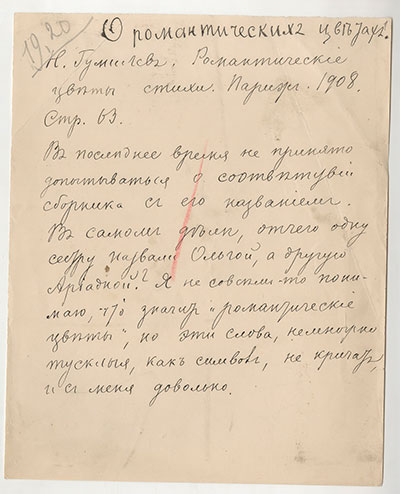 19 20
О романтическихъ цвѣтахъ.
Н. Гумилевъ. Романтическіе
цвѣты стихи. Парижъ. 1908.
Стр. 63.
Въ послѣднее время не принято
допытываться о соотвѣтствіи
сборника съ его названіемъ.
Въ самомъ дѣлѣ, отчего одну
сестру назвали Ольгой, а другую
Аріадной? Я не совсѣмъ-то пони-
маю, что значатъ „романтическіе
цвѣты", но эти слова, немножко
тусклыя, какъ символъ, не кричатъ,
и съ меня довольно.